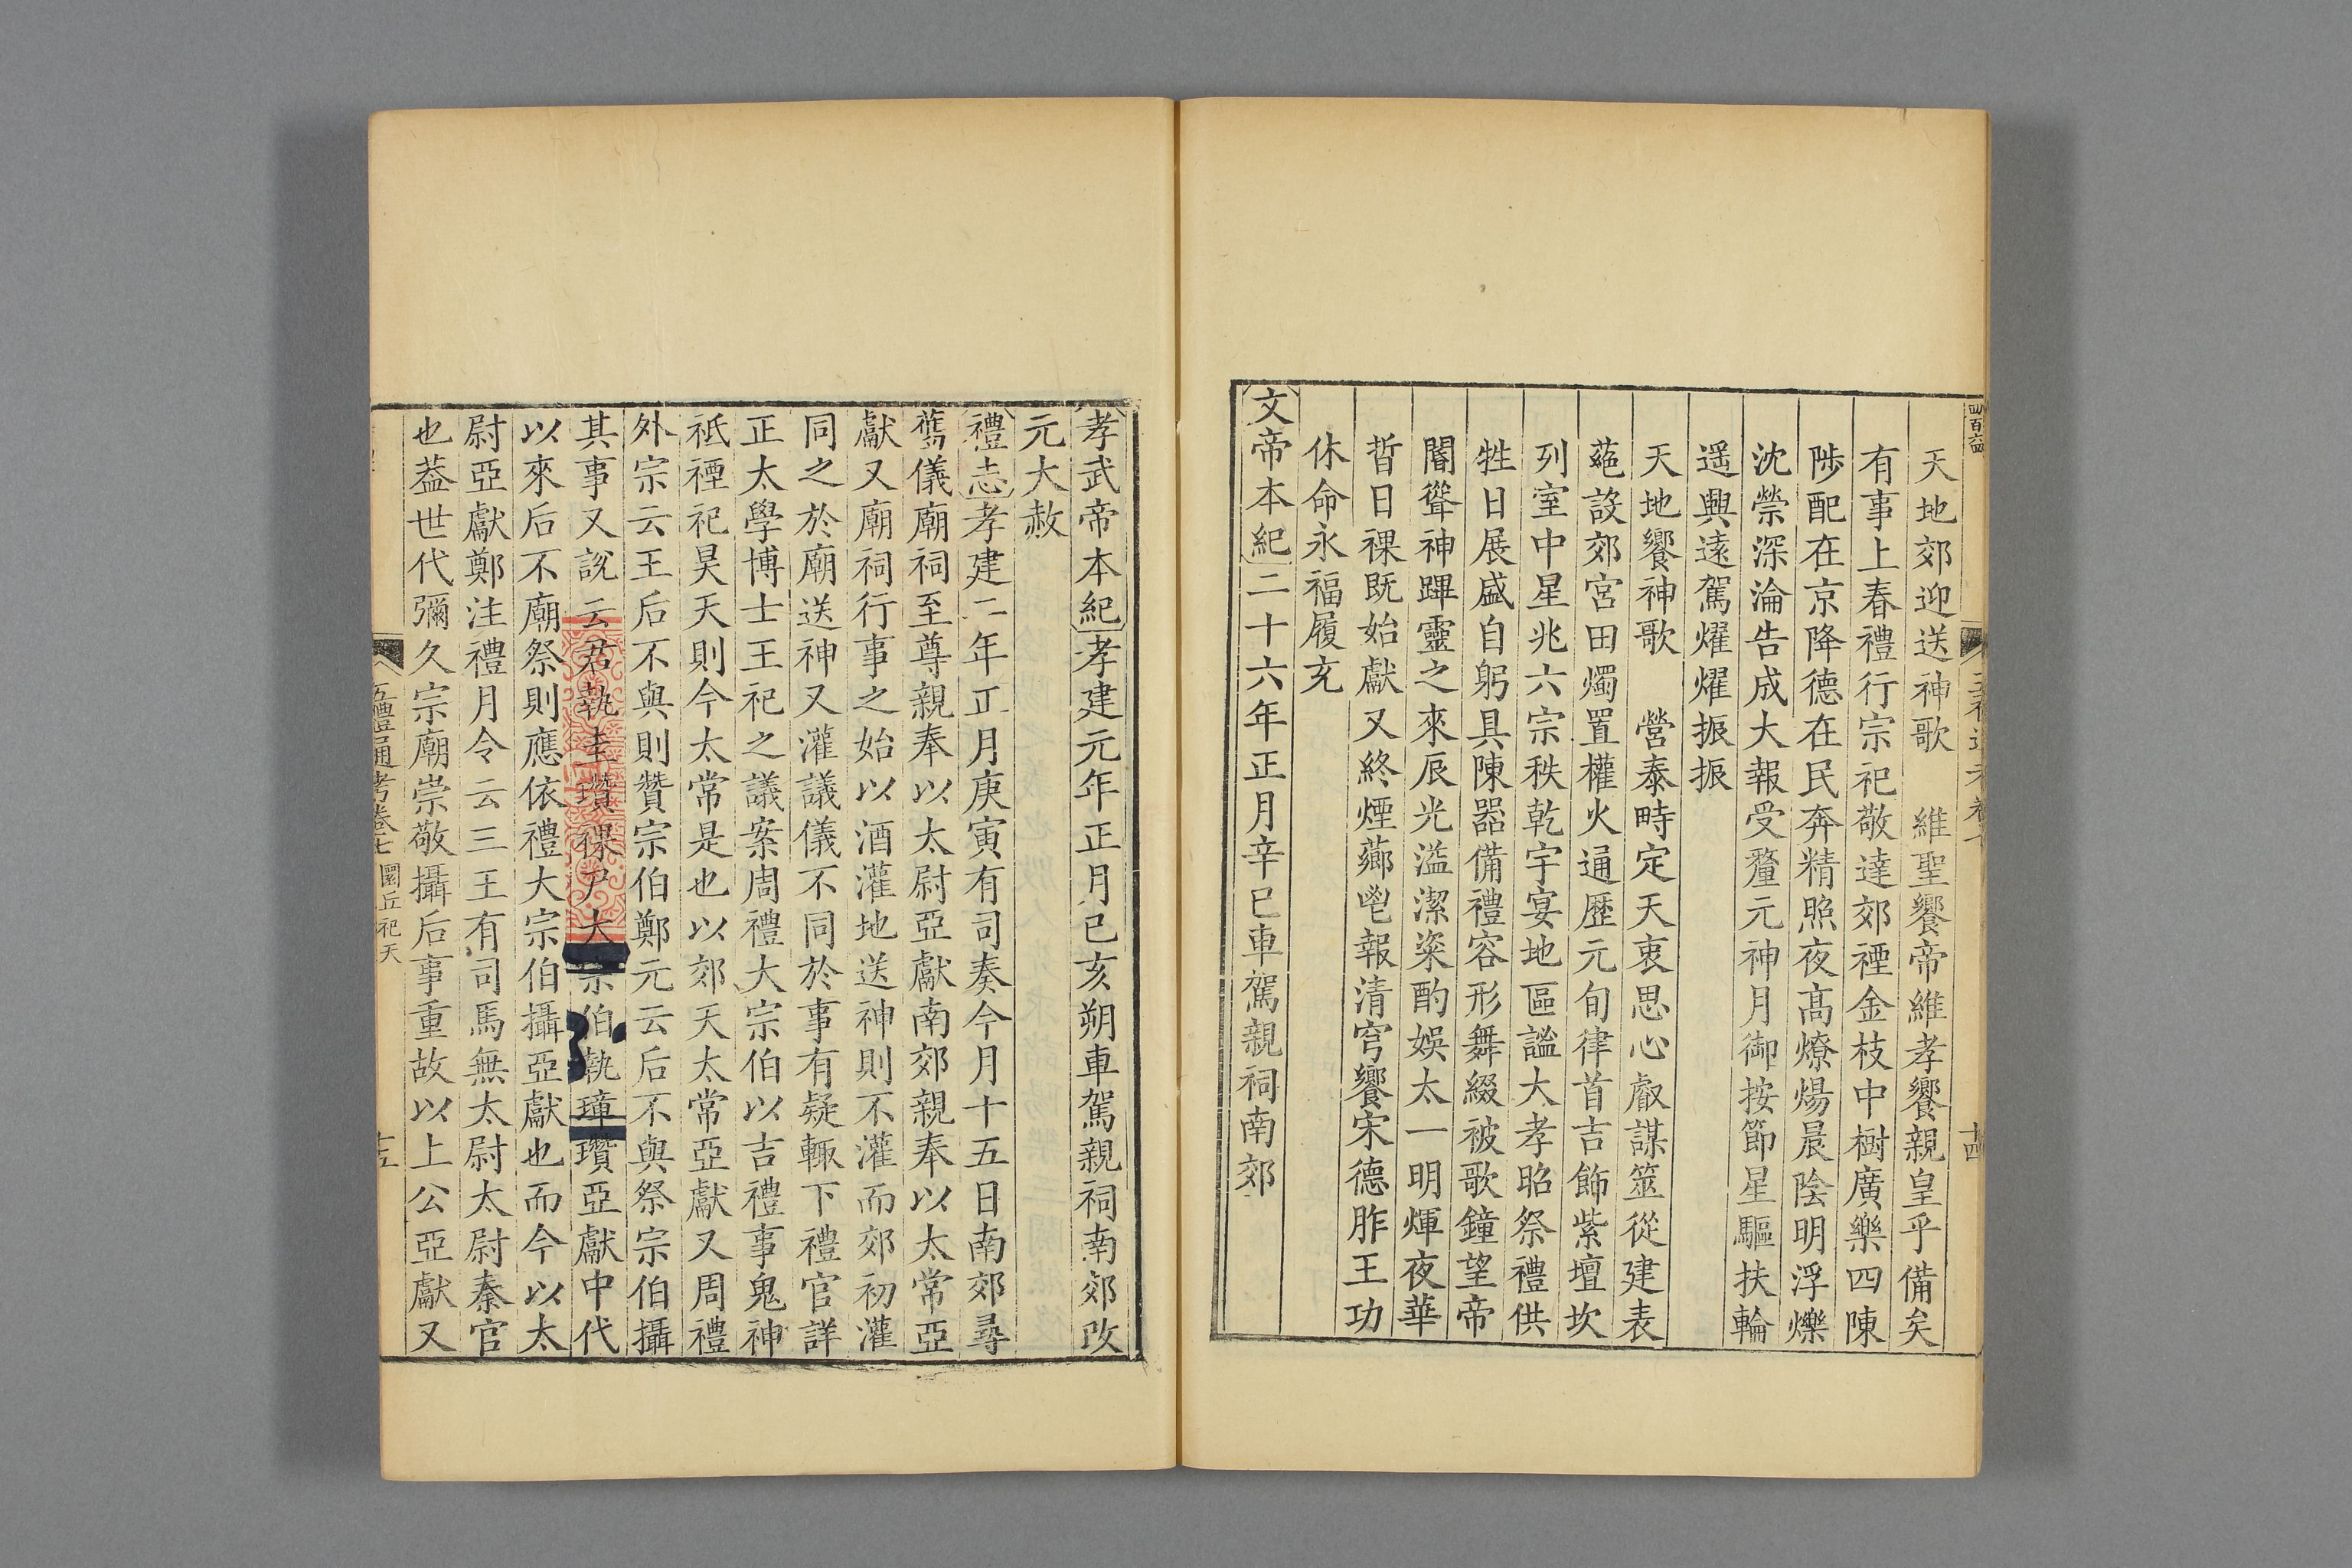 天地郊迎送神歌　維聖饗帝維孝饗親皇乎備矣
有事上春禮行宗祀敬達郊禋金枝中樹廣樂四陳
陟配在京降德在民奔精照夜高燎煬晨陰明浮爍
沈禜深淪告成大報受釐元神月御按節星驅扶輪
遥興遠駕燿燿振振
天地饗神歌　營泰畤定天衷思心叡謀筮從建表
蕝設郊宮田燭置權火通歷元旬律首吉飾紫壇坎
列室中星兆六宗秩乾宇宴地區謐大孝昭祭禮供
牲日展盛自躬具陳器備禮容形舞綴被歌鐘望帝
閽聳神蹕靈之來辰光溢潔粢酌娛太一明煇夜華
晢日祼既始獻又終煙薌鬯報清穹饗宋德胙王功
休命永福履充
文帝本紀二十六年正月辛巳車駕親祠南郊
孝武帝本紀孝建元年正月己亥朔車駕親祠南郊改
元大赦
禮志孝建二年正月庚寅有司奏今月十五日南郊尋
舊儀廟祠至尊親奉以太尉亞獻南郊親奉以太常亞
獻又廟祠行事之始以酒灌地送神則不灌而郊初灌
同之於廟送神又灌議儀不同於事有疑輒下禮官詳
正太學博士王祀之議案周禮大宗伯以吉禮事鬼神
祇禋祀昊天則今太常是也以郊天太常亞獻又周禮
外宗云王后不與則贊宗伯鄭元云后不與祭宗伯攝
其事又說云君執圭瓚祼尸大宗伯執璋瓚亞獻中代
以來后不廟祭則應依禮大宗伯攝亞獻也而今以太
尉亞獻鄭注禮月令云三王有司馬無太尉太尉秦官
也葢世代彌久宗廟崇敬攝后事重故以上公亞獻又
五禮通考卷七　圜丘祀天　十五